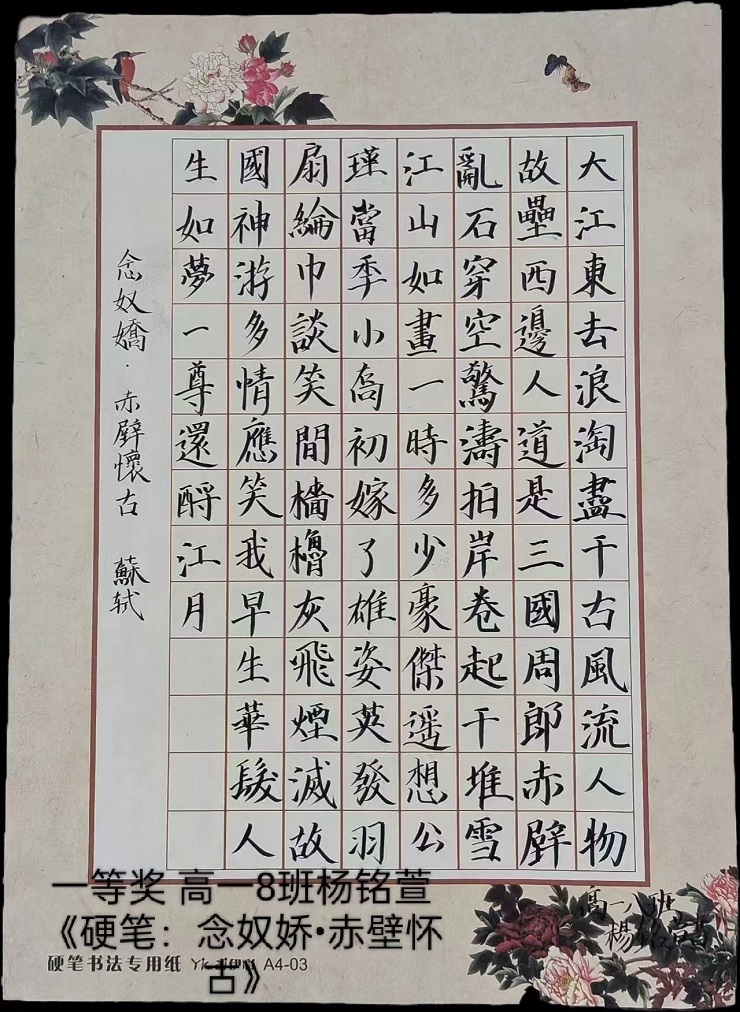 大江東去浪淘盡千古風流人物
故壘西邊人道是三國周郎赤壁
亂石穿空驚濤拍岸卷起千堆雪
江山如畫一時多少豪傑遥想公
瑾當季小喬初嫁了雄姿英發羽
扇綸巾談笑間檣櫓灰飛煙滅故
國神游多情應笑我早生華髮人
生如夢一尊還酹江月
念奴嬌·赤壁懷古 蘇轼
高一八班
楊銘萱書
一等奖 高一8班杨铭萱
《硬笔：念奴娇•赤壁怀
古》
硬笔书法专用纸 A4-03